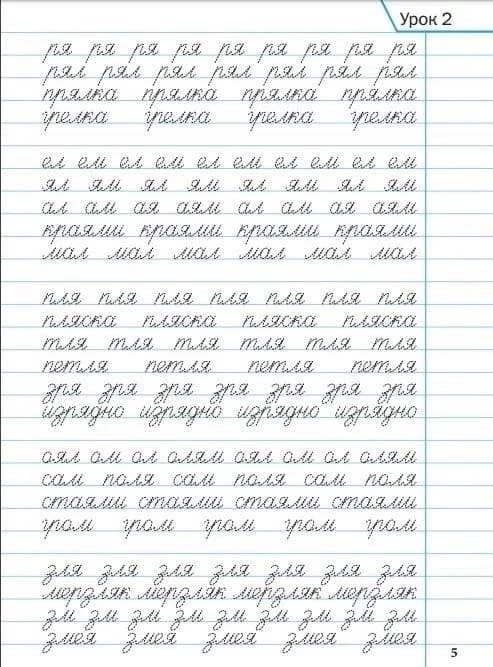 Урок 2
ря ря ря ря ря ря ря ря ря
рял рял рял рял рял рял рял
прялка прялка прялка прялка
грелка грелка грелка грелка
ел ем ел ем ел ем ел ем ел ем
ял ям ял ям ял ям ял ям
ал ам ая аям ал ам ая аям
краями краями краями краями
мал мал мал мал мал мал мал
пля пля пля пля пля пля пля
пляска пляска пляска пляска
тля тля тля тля тля тля
петля петля петля петля
зря зря зря зря зря зря зря
изрядно изрядно изрядно изрядно
оял ом ол олям оял ом ол олям
сам поля сам поля сам поля
стаями стаями стаями стаями
гром гром гром гром гром
зля зля зля зля зля зля зля
мерзляк мерзляк мерзляк мерзляк
зм зм зм зм зм зм зм зм зм
змея змея змея змея змея
5